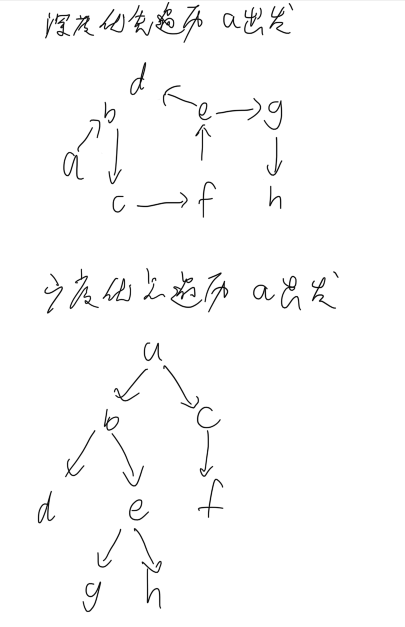 深度优先遍历 a出发
d
b e g
a
c f h
广度优先遍历 a出发
a
b c
d e f
g h